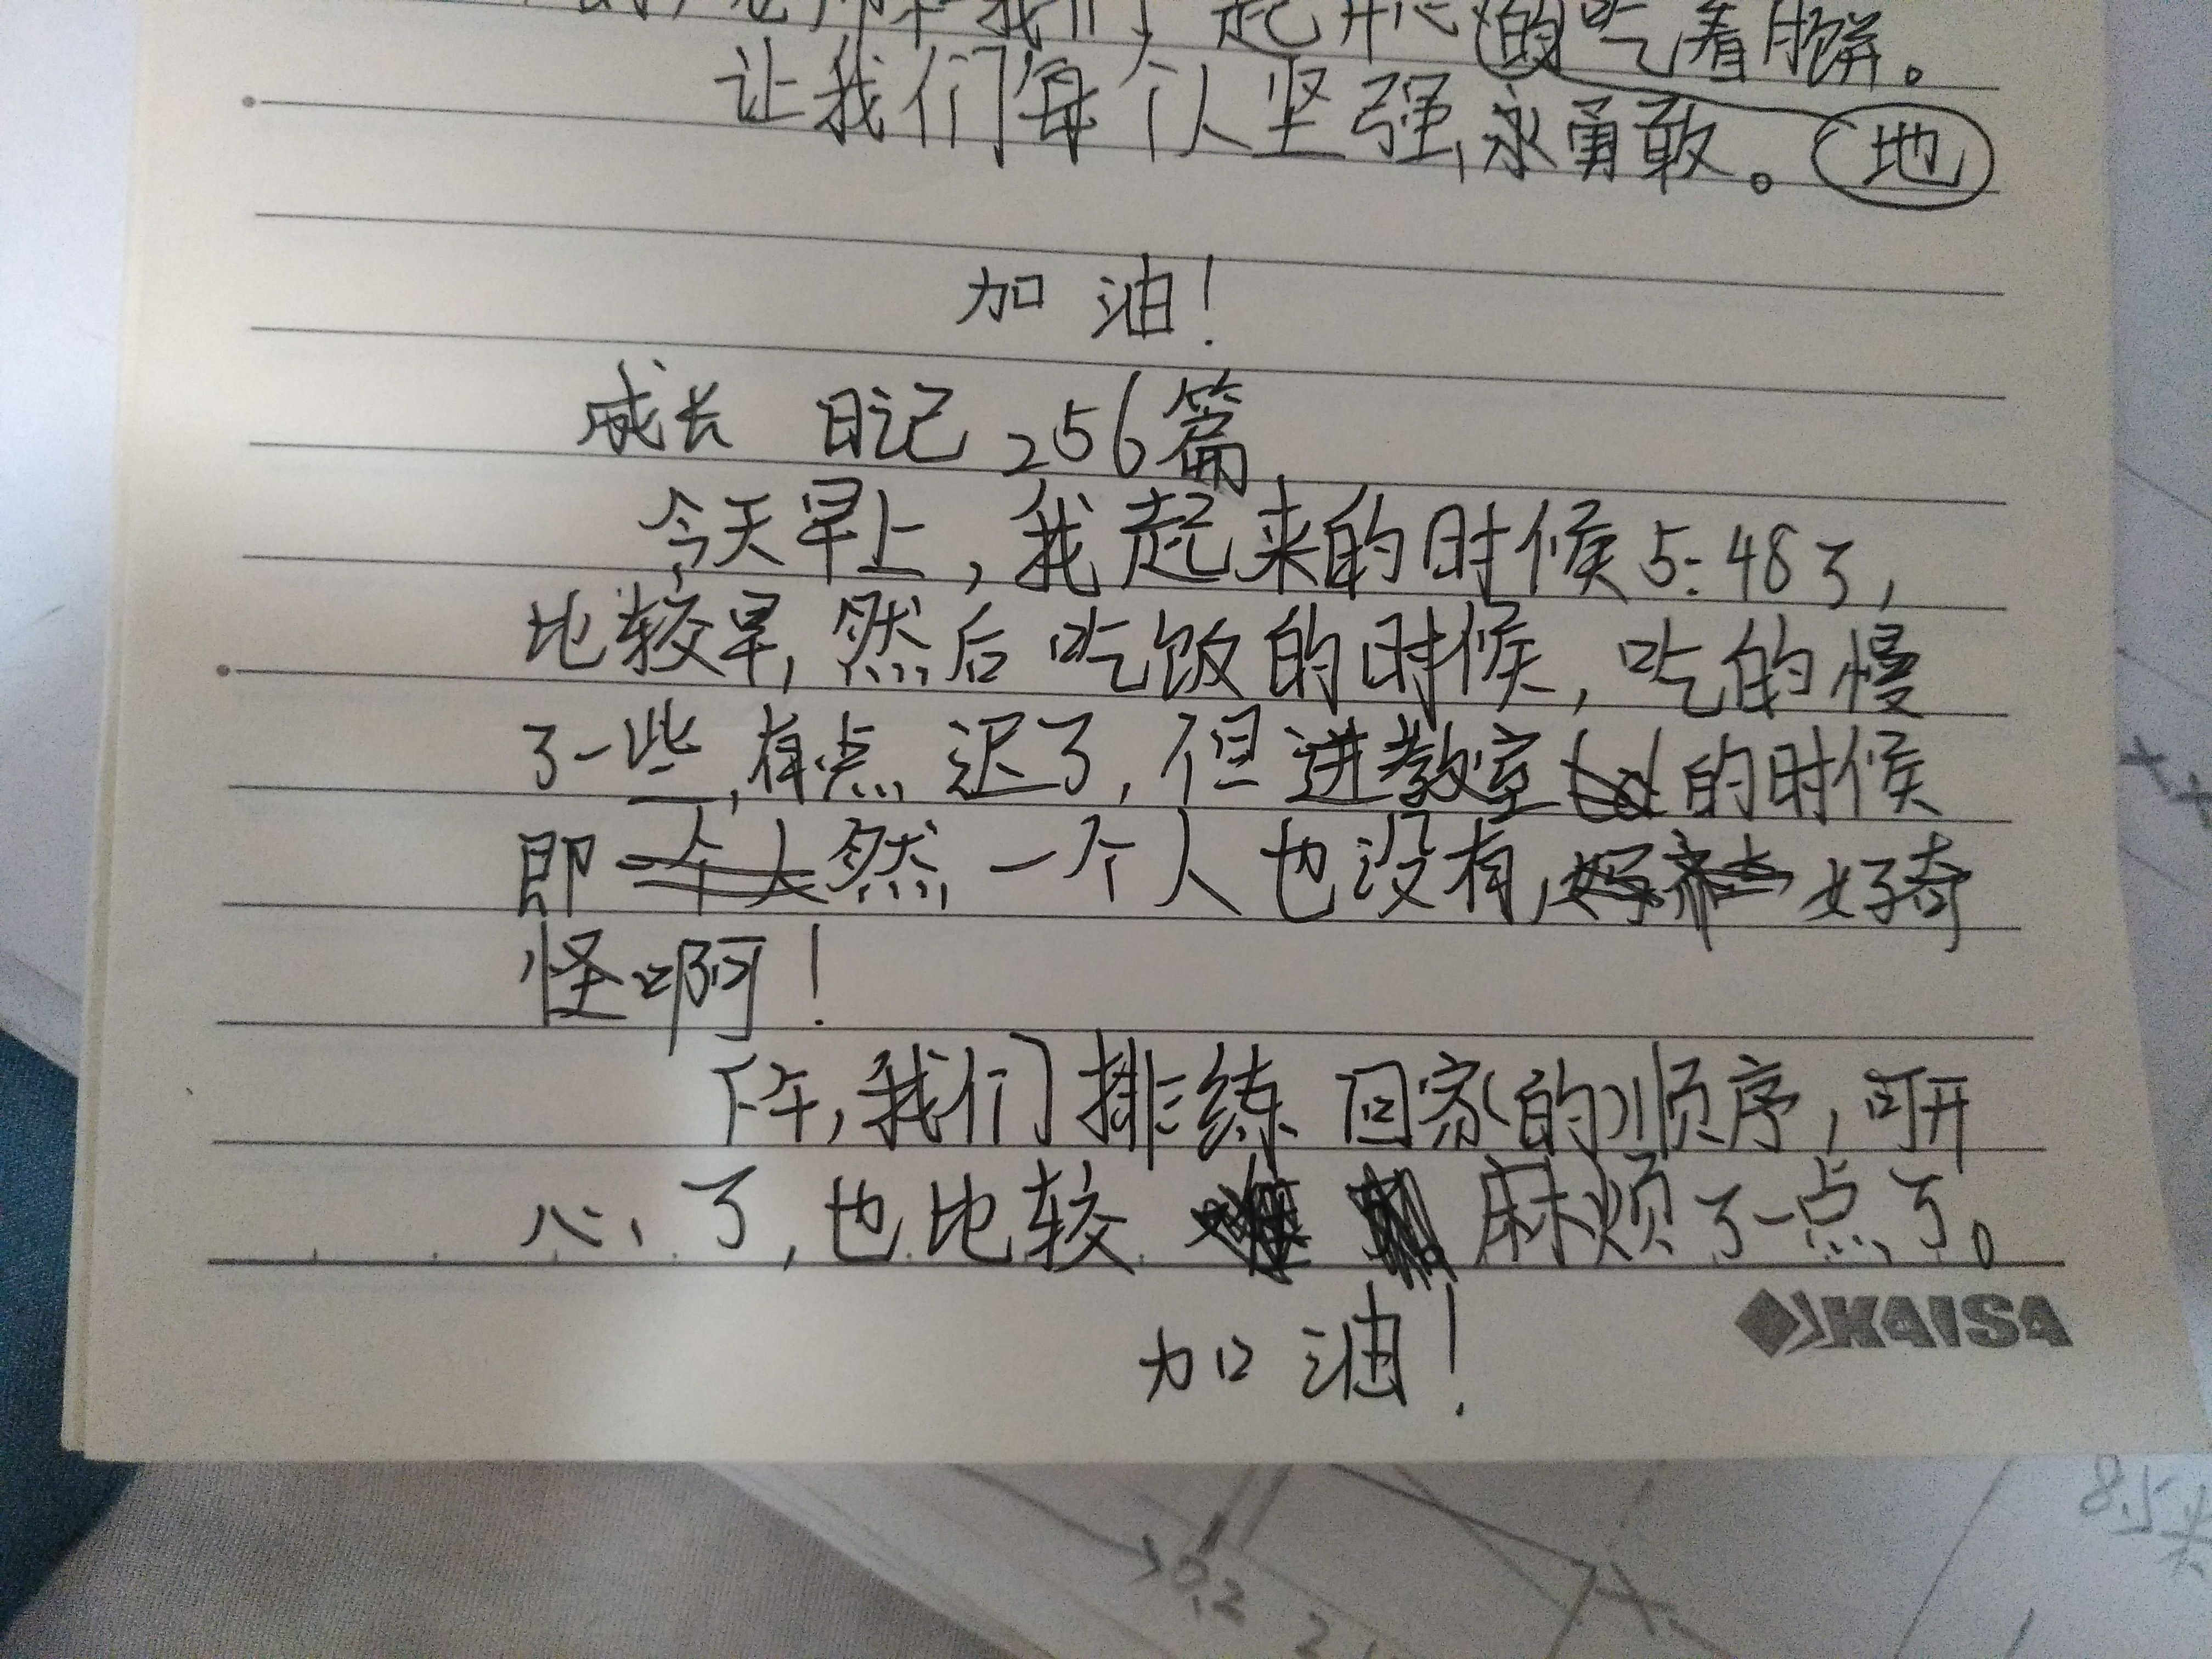 我们一起开心的吃着月饼。
让我们每个人坚强,永勇敢。 地
加油!
成长 日记 256篇
今天早上,我起来的时候5:48了,
比较早,然后吃饭的时候,吃的慢
了一些,有点迟了,但进教室的时候
即然一个人也没有,好奇
怪啊!
下午,我们排练回家(的)顺序,可开
心了,也比较麻烦了一点了。
KAISA
加油!
0.2 2